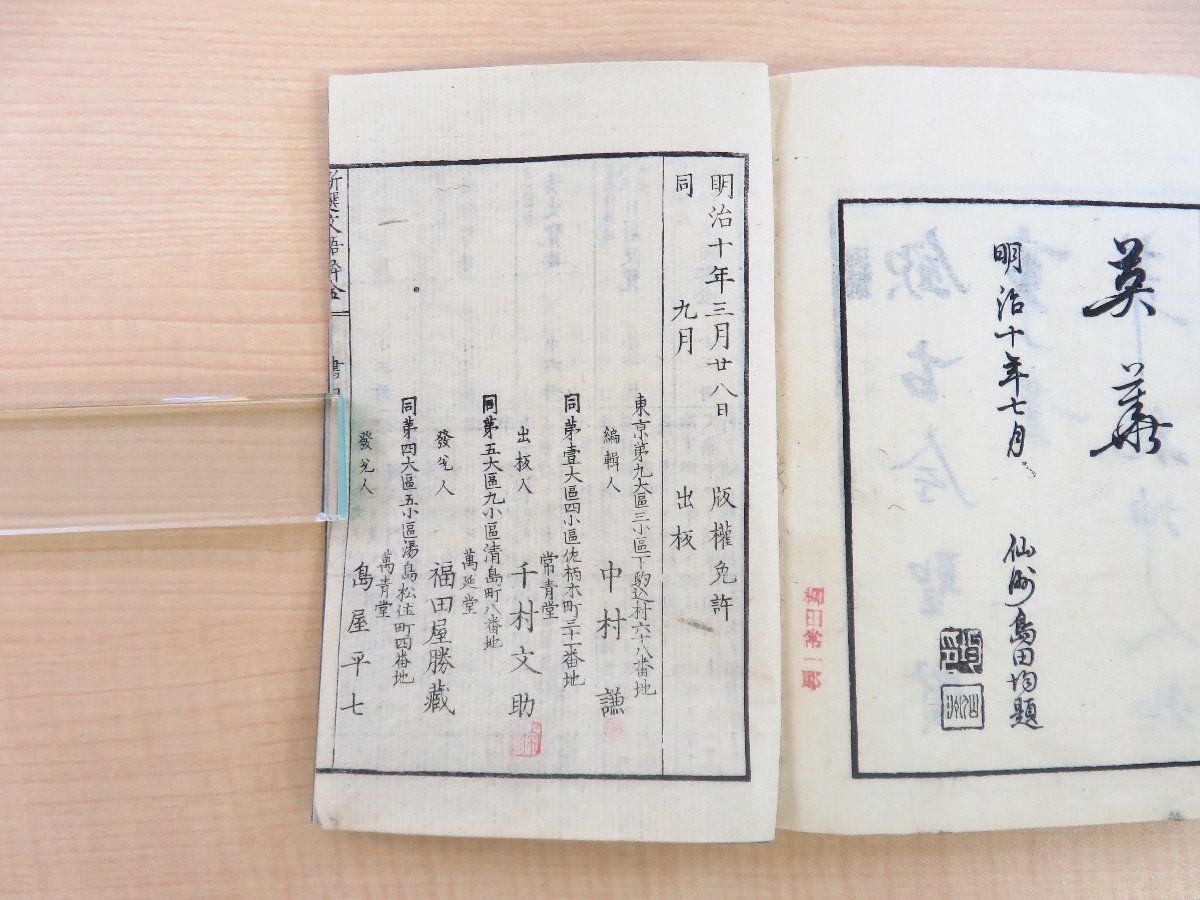 英華
明治十年七月
仙洲島田均題
明治十年三月廿八日 版權免許
同 九月 出板
東京第九大區三小區下駒込村六十八番地
編輯人 中村 謙
同第壹大區四小區佐柄木町三十一番地
常青堂
出板人 千村文助
同第五大區九小區清島町八番地
萬延堂
發兌人 福田屋勝藏
同第四大區五小區湯島松住町四番地
萬青堂
發兌人 島屋平七